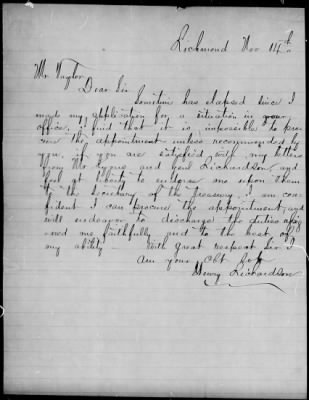 Richmond Nov 14th
Mr Taylor
Dear Sir
Sometime has elapsed since I
made my application for a situation in your
office, I find that it is impossible to pro-
cure the appointment unless recommended by
you, if you are satisfied with my letters
Mr Lyons and Genl Richardson, and
feel at liberty to endorse me upon them
to the Secretary of the Treasury I am con-
fident I can procure the appointment, and
will endeavor to discharge the duties assig-
ned me faithfully and to the best of
my ability. With great respect Sir I
am your Obt Svt
Henry Richardson